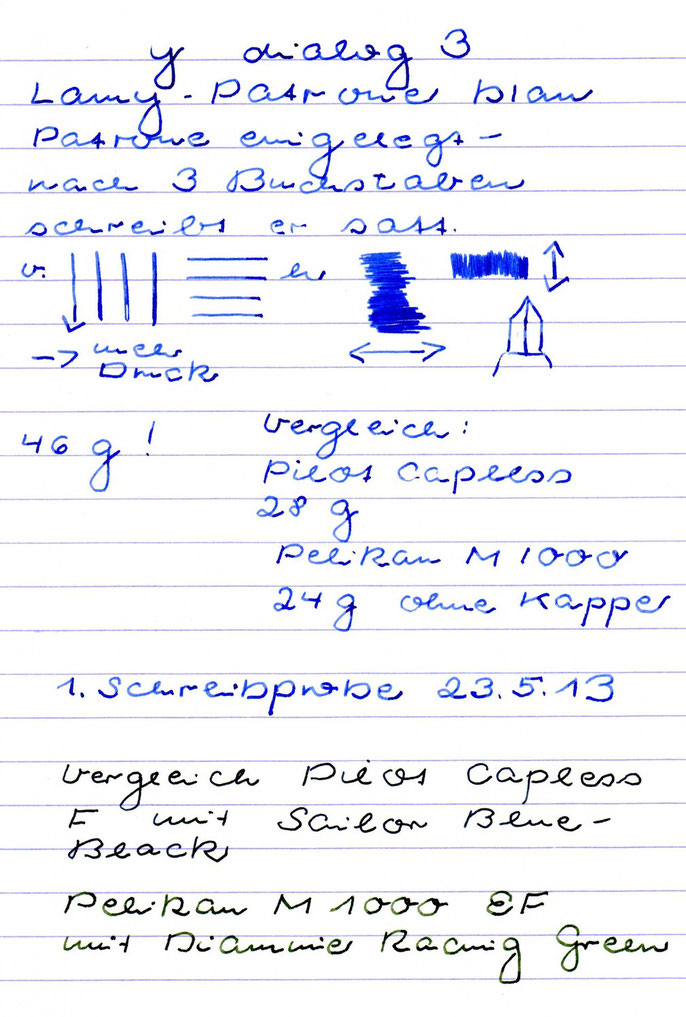 y dialog 3
Lamy-Patrone blau
Patrone eingelegt -
nach 3 Buchstaben
schreibt er satt.
v.
→ mehr
Druck
46 g !
Vergleich:
Pilot Capless
28 g
Pelikan M 1000
24 g ohne Kappe
1. Schreibprobe 23.5.13
Vergleich Pilot Capless
F mit Sailor Blue-
Black
Pelikan M 1000 EF
mit Diammie Racing Green